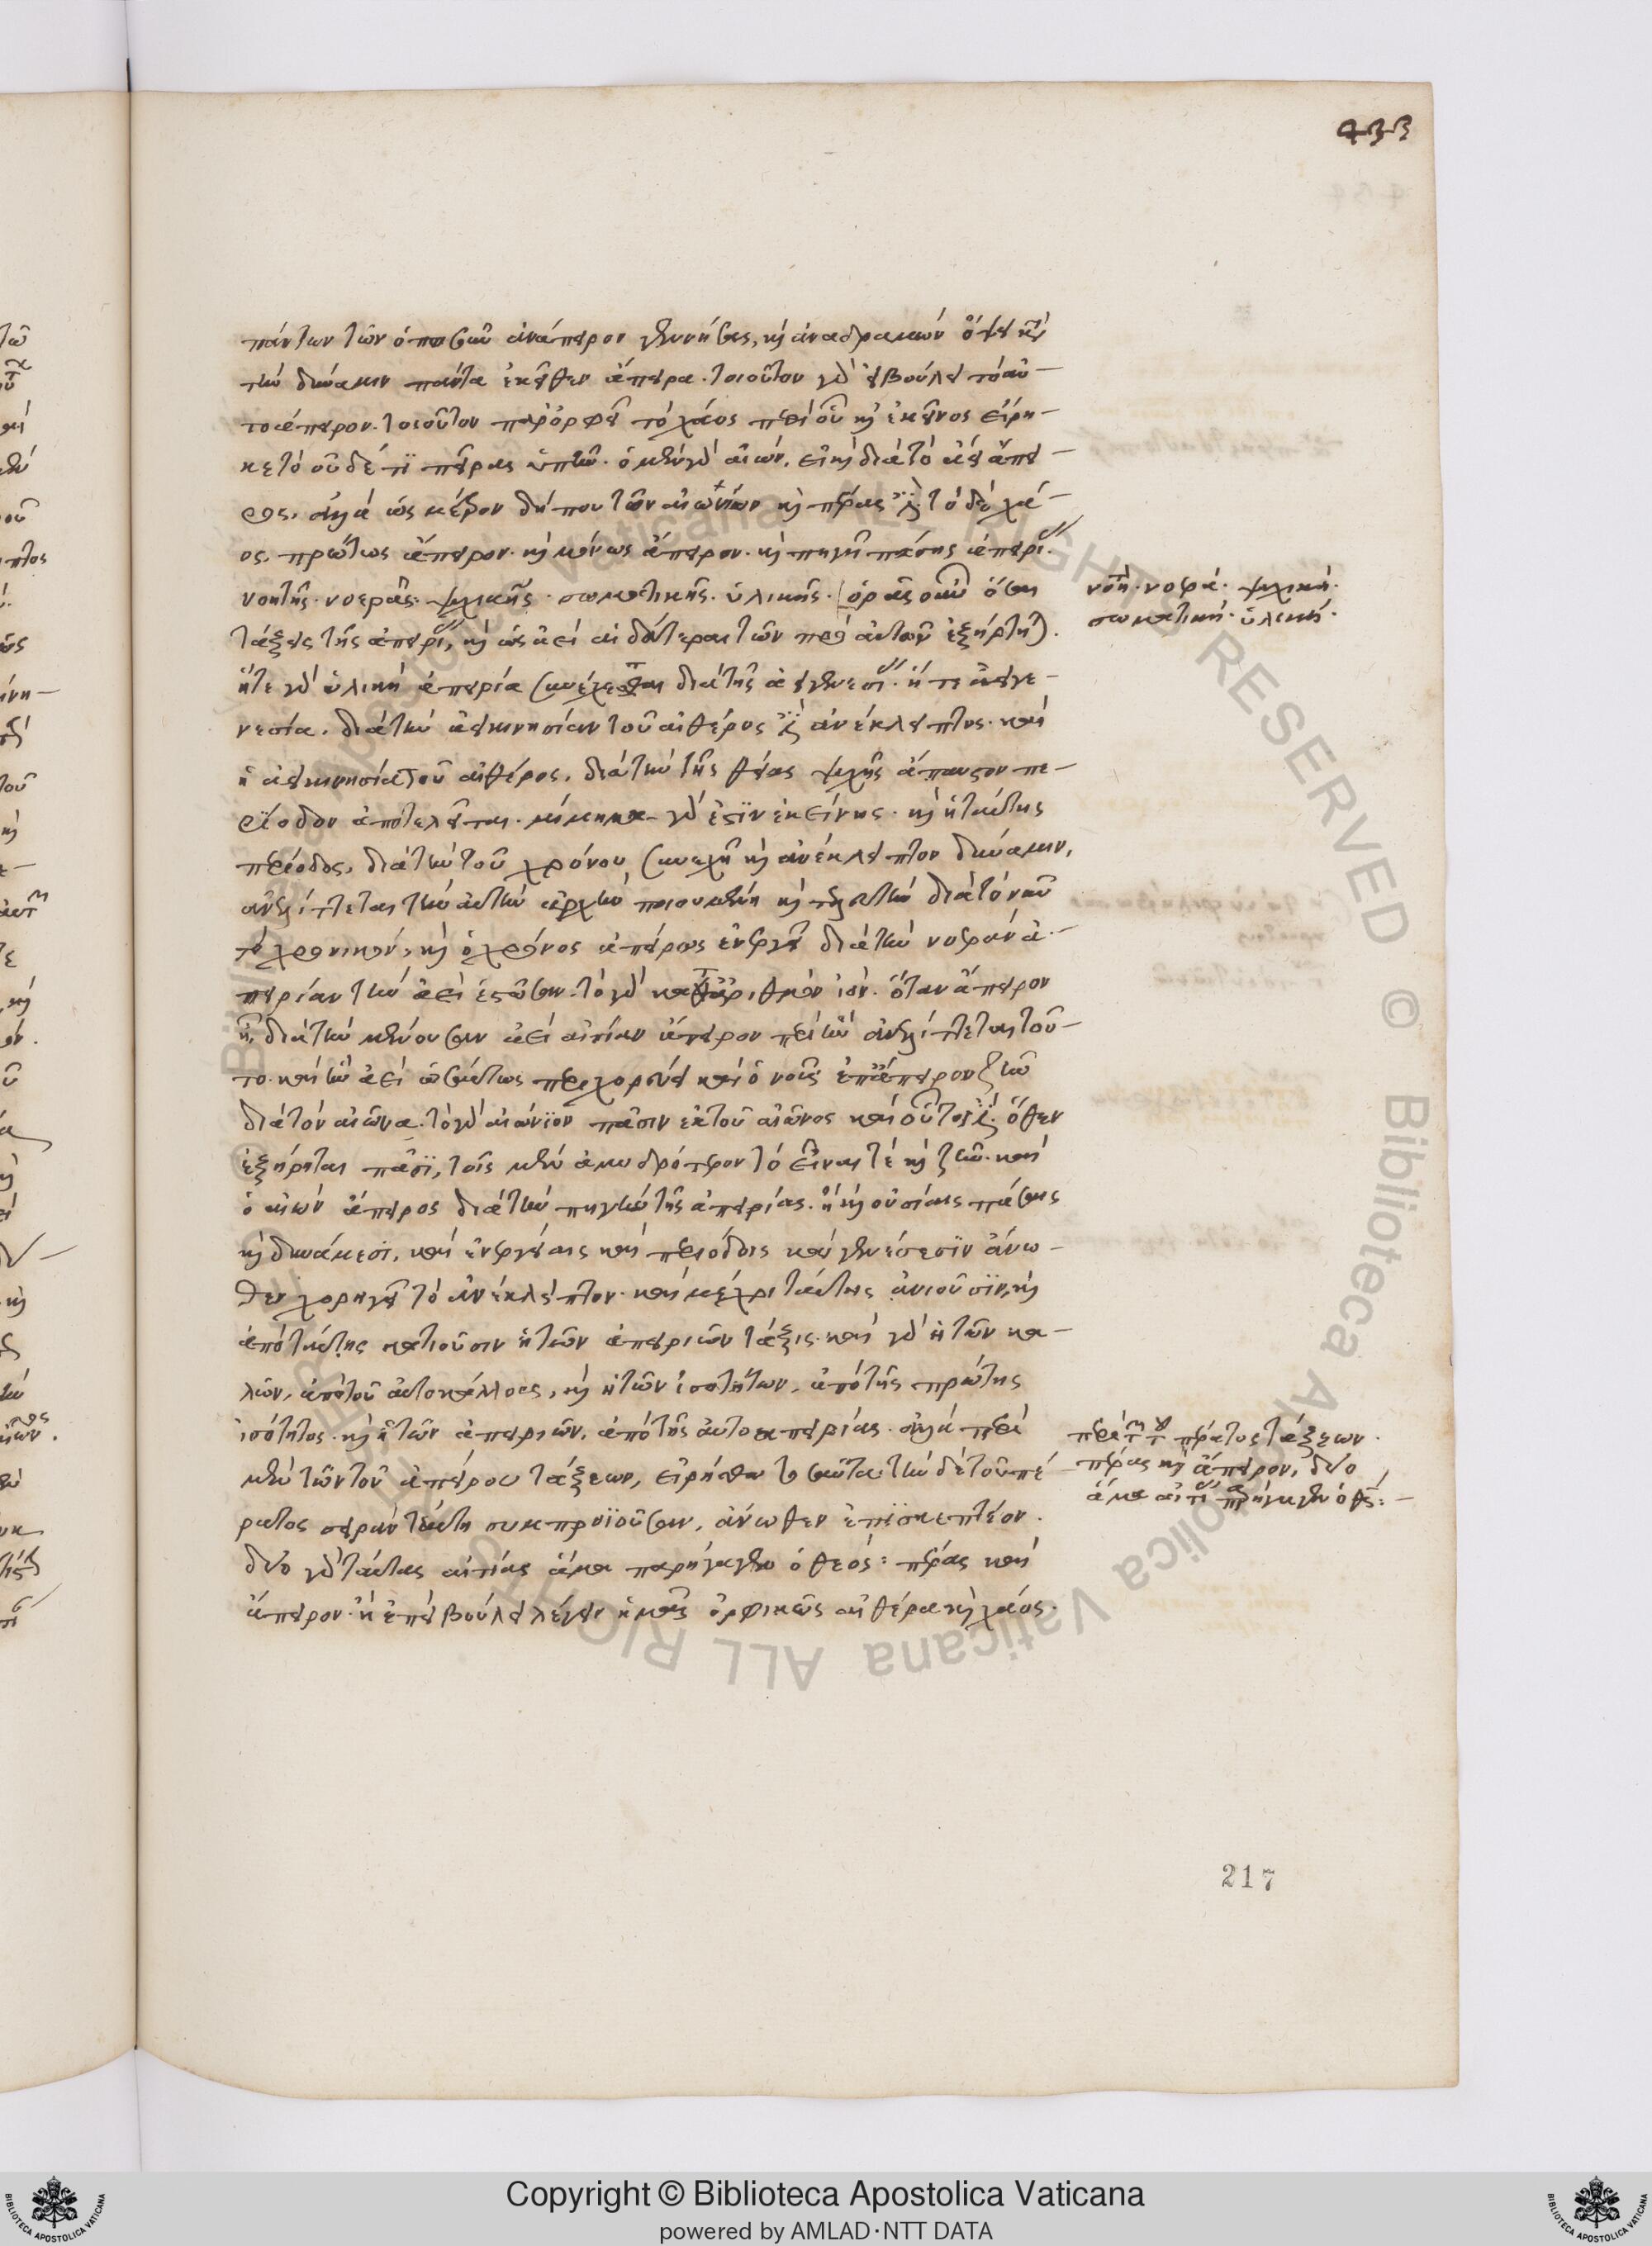 433
πάντων τῶν ὁπωσοῦν ἀνάπειρον γεννήσας, καὶ ἀναδραμὼν ὄψει καὶ
τὴν δύναμιν πάντα ἐκεῖθεν ἄπειρα. τοιοῦτον γὰρ ἐβούλετο αὐ-
τοάπειρον. τοιοῦτον παρ' ὀρφεῖ τὸ χάος περὶ οὗ καὶ ἐκεῖνος εἴρη-
κε τὸ οὐδέ τι πεῖρας ὑπῆν. ὁ μὲν γὰρ αἰών, εἰ καὶ διὰ τὸ ἀεὶ ἄπει-
ρος, ἀλλὰ ὡς μέτρον δήπου τῶν αἰωνίων καὶ πέρας ἐστί. τὸ δὲ χά-
ος, πρώτως ἄπειρον. καὶ μόνως ἄπειρον. καὶ πηγὴ πάσης ἀπειρίας.
νοητῆς. νοερᾶς. ψυχικῆς. σωματικῆς. ὑλικῆς. ὁρᾷς οὖν ὅσαι
τάξεις τῆς ἀπειρίας, καὶ ὡς ἀεὶ αἱ δεύτεραι τῶν πρὸ αὐτῶν ἐξήρτηνται.
ἥτε γὰρ ὑλικὴ ἀπειρία συνέχεται διὰ τῆς ἀειγενεσίας. ἥ τε ἀειγε-
νεσία, διὰ τὴν ἀεικινησίαν τοῦ αἰθέρος ἐστὶν ἀνέκλειπτος. καὶ
ἡ ἀεικινησία τοῦ αἰθέρος, διὰ τὴν τῆς θείας ψυχῆς ἄπαυστον πε-
ρίοδον ἀποτελεῖται. μίμημα γάρ ἐστιν ἐκείνης. καὶ ἡ ταύτης
περίοδος, διὰ τὴν τοῦ χρόνου συνεχῆ καὶ ἀνέκλειπτον δύναμιν,
ἀνελίττεται τὴν αὐτὴν ἀρχὴν ποιουμένη καὶ τελευτὴν διὰ τὸ νῦν
τὸ χρονικόν, καὶ ὁ χρόνος ἀπείρως ἐνεργεῖ διὰ τὴν νοερὰν ἀ-
πειρίαν τὴν ἀεὶ ἑστῶσαν. τὸ γὰρ κατ' ἀριθμὸν ἰόν. ὅταν ἄπειρον
ᾖ, διὰ τὴν μένουσαν ἀεὶ αἰτίαν ἄπειρον περὶ ἣν ἀνελίττεται τοῦ-
το. καὶ ἣν ἀεὶ ὡσαύτως περιχορεύει καὶ ὁ νοῦς ἐπ' ἄπειρον ζῇ
διὰ τὸν αἰῶνα. τὸ γὰρ αἰώνιον πᾶσιν ἐκ τοῦ αἰῶνος καὶ οὗτός ἐστιν ὅθεν
ἐξήρτηται πᾶσι, τοῖς μὲν ἀμυδρότερον τὸ εἶναι τὲ καὶ ζῆν. καὶ
ὁ αἰὼν ἄπειρος διὰ τὴν πηγὴν τῆς ἀπειρίας. ἣ καὶ οὐσίαις πάσαις
καὶ δυνάμεσι, καὶ ἐνεργείαις καὶ περιόδοις καὶ γενέσεσιν ἄνω-
θεν χορηγεῖ τὸ ἀνέκλειπτον. καὶ μέχρι ταύτης ἀνιοῦσιν, καὶ
ἀπὸ ταύτης κατιοῦσιν ἡ τῶν ἀπειριῶν τάξις. καὶ γὰρ ἡ τῶν κα-
λῶν, ἀπὸ τοῦ αὐτοκάλλους, καὶ ἡ τῶν ἰσοτήτων, ἀπὸ τῆς πρώτης
ἰσότητος. καὶ ἡ τῶν ἀπειριῶν, ἀπὸ τῆς αὐτοαπειρίας. ἀλλὰ περὶ
μὲν τῶν τοῦ ἀπείρου τάξεων, εἰρήσθω τοσαῦτα. τὴν δὲ τοῦ πέ-
ρατος σειρὰν ταύτῃ συμπροϊοῦσαν, ἄνωθεν ἐπισκεπτέον.
δύο γὰρ ταύτας αἰτίας ἅμα παρήγαγεν ὁ θεός: πέρας καὶ
ἄπειρον. ἢ ἐπεὶ βούλει λέγειν ἡμᾶς ὀρφικῶς αἰθέρα καὶ χάος.
νοητή. νοερά. ψυχική.
σωματική. ὑλική.
περὶ τῶν τοῦ πέρατος τάξεων.
πέρας καὶ ἄπειρον, δύο
ἅμα αἰτίας παρήγαγεν ὁ θεός:-
217
Copyright © Biblioteca Apostolica Vaticana
powered by AMLAD·NTT DATA